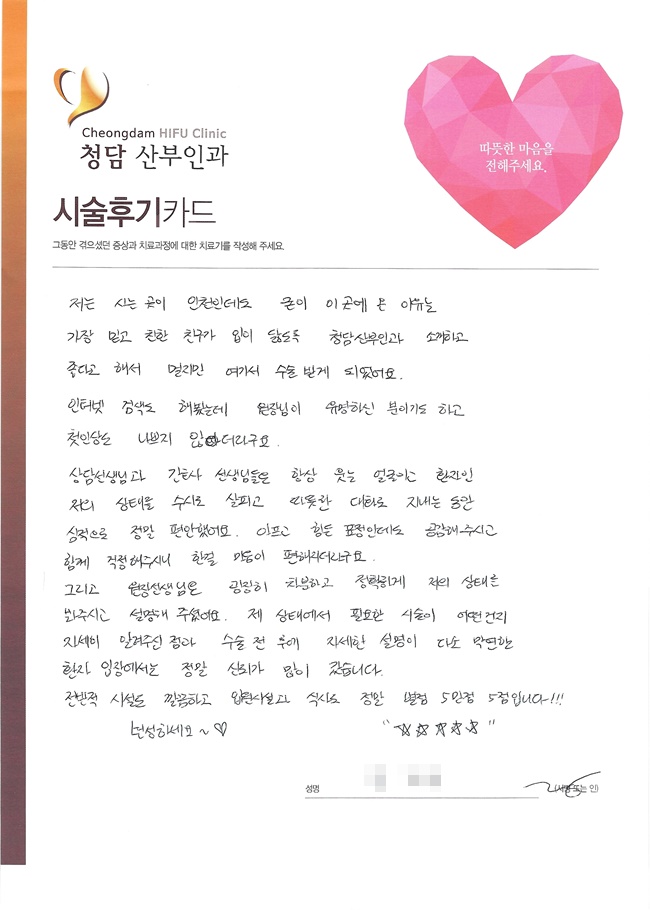 Cheongdam HIFU Clinic
청담 산부인과
따뜻한 마음을
전해주세요.
시술후기카드
그동안 겪으셨던 증상과 치료과정에 대한 치료기를 작성해 주세요.
저는 사는 곳이 인천인데도 굳이 이 곳에 온 이유는
가장 믿고 친한 친구가 입이 닳도록 청담산부인과 소개하고
좋다고 해서 멀지만 여기서 수술 받게 되었어요.
인터넷 검색도 해봤는데 원장님이 유명하신 분이기도 하고
첫인상도 나쁘지 않더라구요.
상담선생님과 간호사 선생님들은 항상 웃는 얼굴이고 환자인
저의 상태를 수시로 살피고 따뜻한 대화로 지내는 동안
심적으로 정말 편안했어요. 아프고 힘든 표정인데도 공감해주시고
함께 걱정해주시니 한결 마음이 편해지더라구요.
그리고 원장선생님은 굉장히 차분하고 정확하게 저의 상태를
봐주시고 설명해 주셨어요. 제 상태에서 필요한 시술이 어떤건지
자세히 알려주신 점과 수술 전 후에 자세한 설명이 다소 막연한
환자 입장에서는 정말 신뢰가 많이 갔습니다.
전반적 시설도 깔끔하고 입원시설과 식사도 정말 별점 5만점 5점입니다~!!!
번성하세요~♡ "☆☆☆☆☆"
성명 (서명 또는 인)